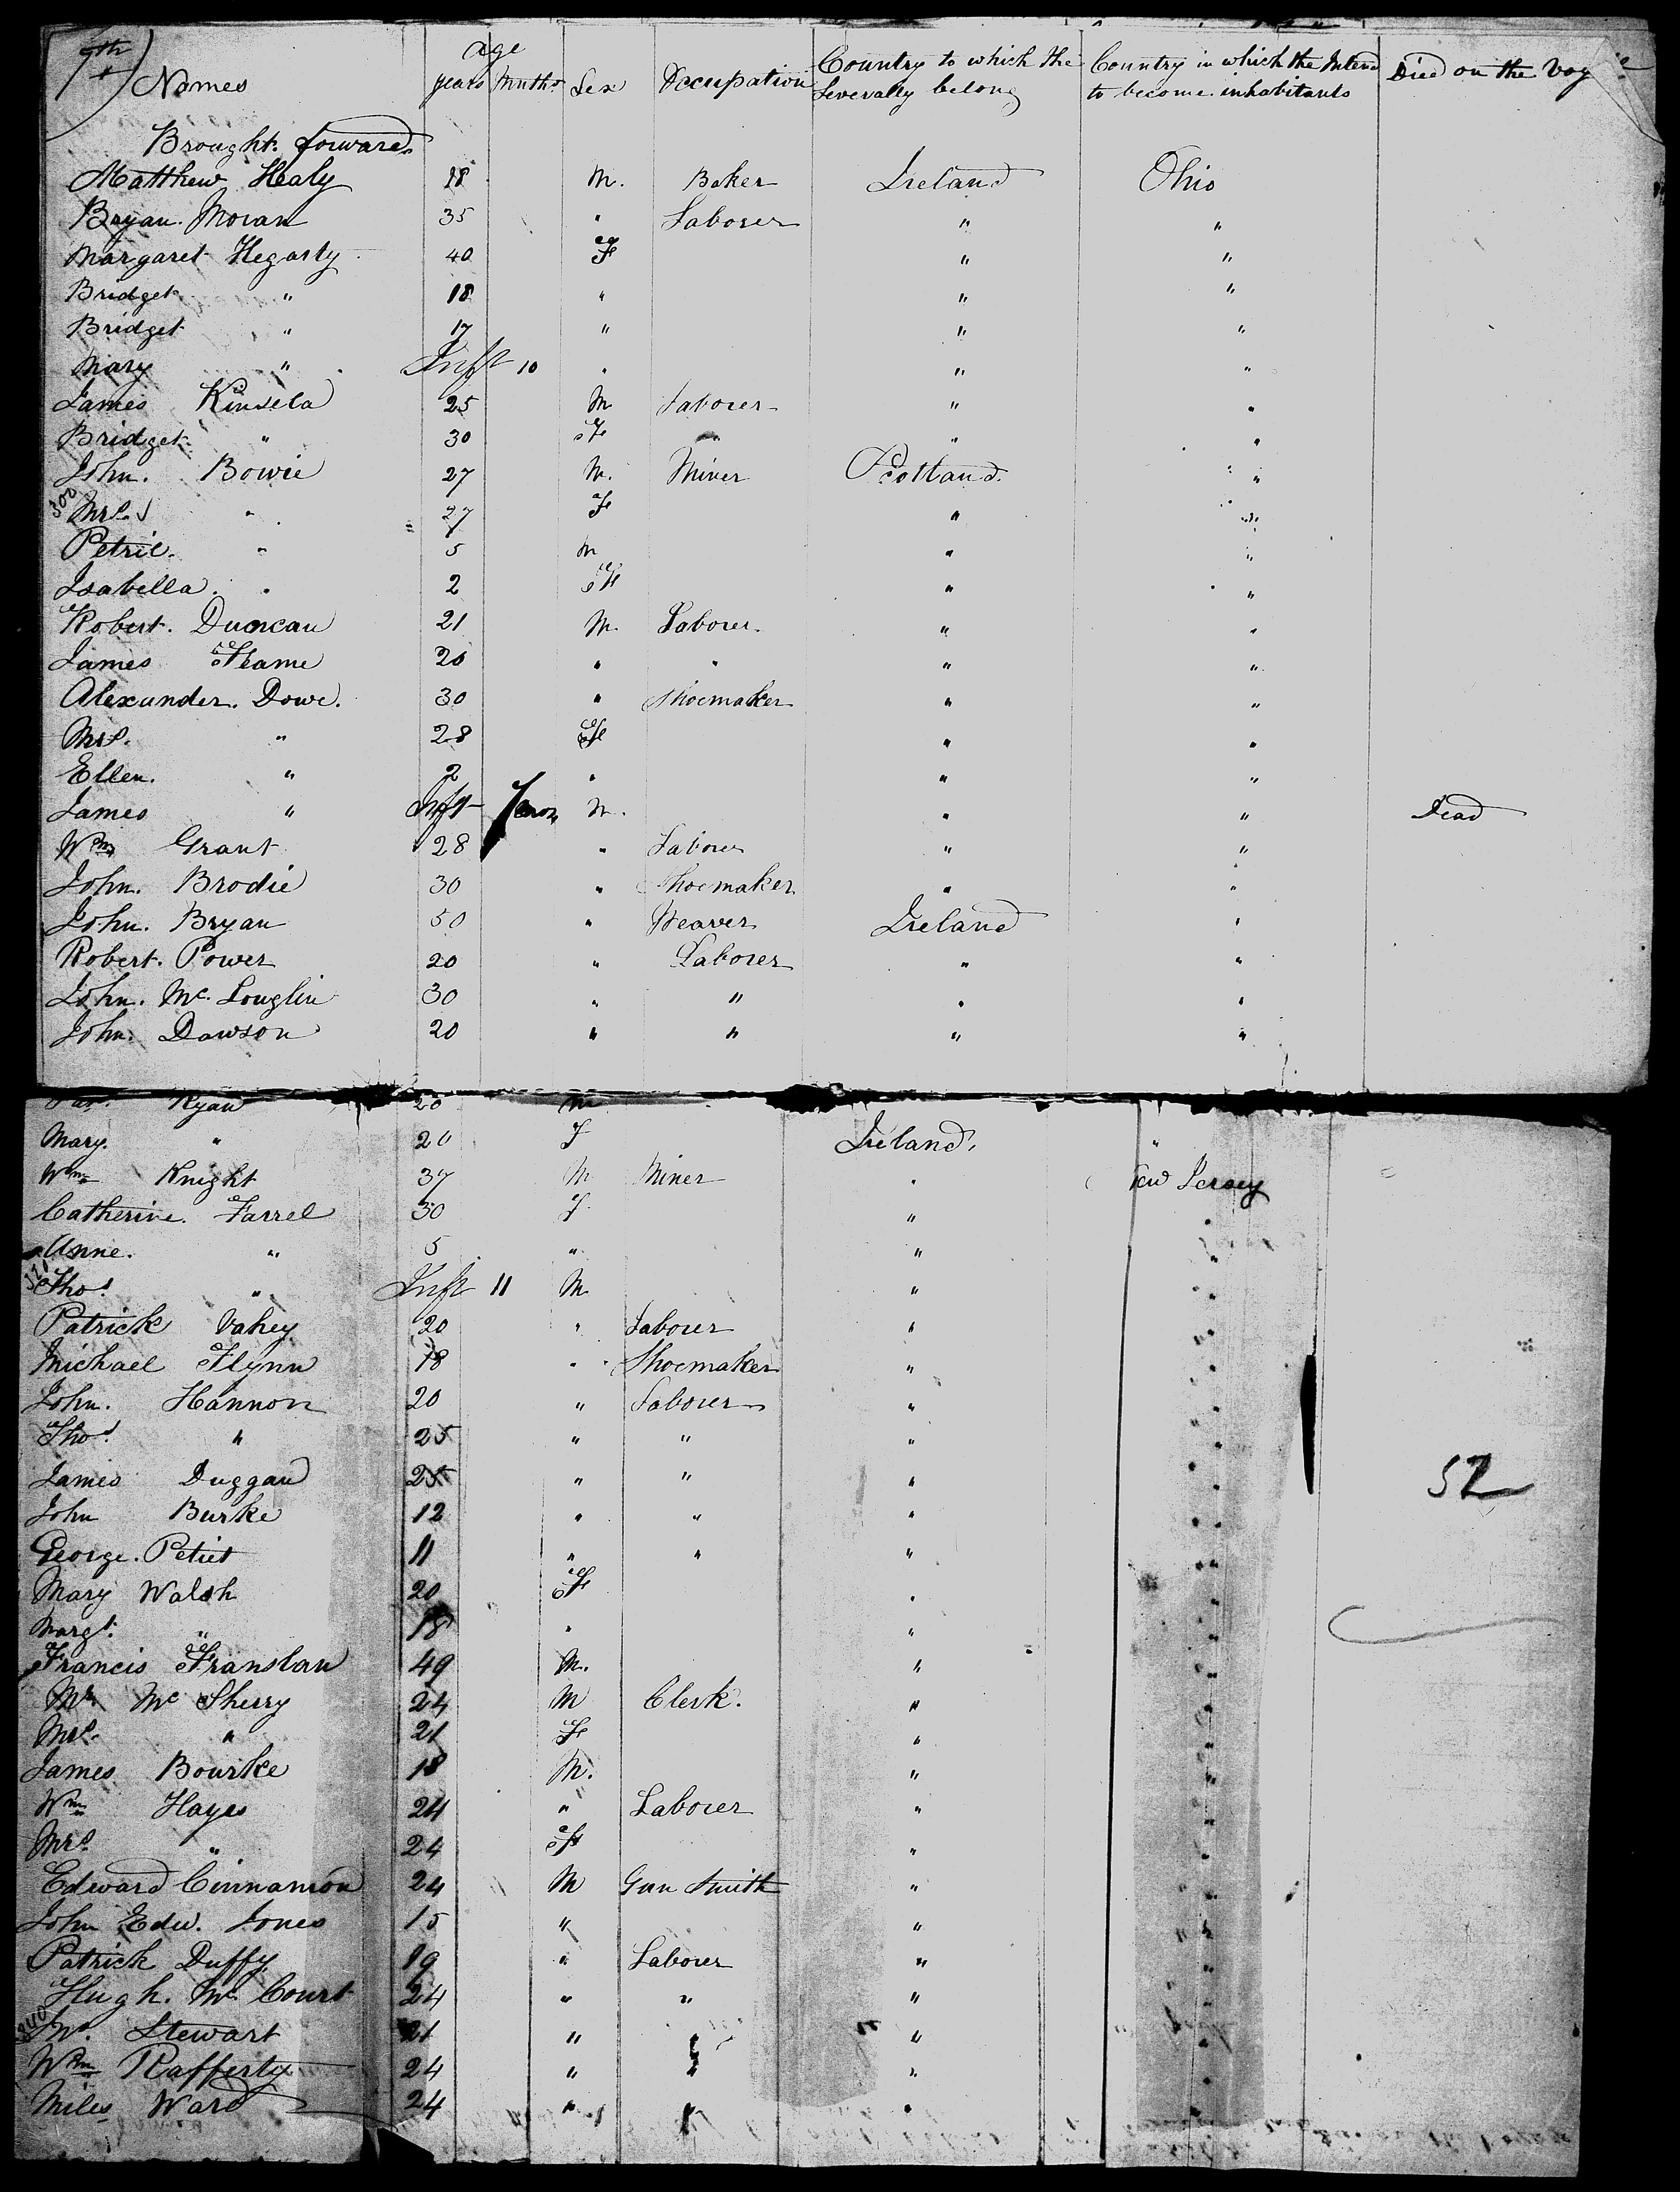 7th
age
Names years Months Sex Occupation Country to which the Country in which the Intend Died on the Voy
Severally belong to become inhabitants
Brought forward
Matthew Healy 18 M. Baker Ireland Ohio
Bryan Moran 35 " Laborer " "
Margaret Hegarty 40 F " "
Bridget " 18 " " "
Bridget " 17 " " "
Mary " Inft 10 " " "
James Kinsela 25 M Laborer " "
Bridget " 30 F " "
John. Bowie 27 M. Miner Scotland "
300
Mrs. " 27 F " "
Petrie. " 5 M " "
Isabella. " 2 F " "
Robert. Duncan 21 M. Laborer. " "
James 20 " " " "
Alexander. Dowe. 30 " Shoemaker " "
Mrs. " 28 F " "
Ellen. " 2 " " "
James " Inft 7 mos M. " " Dead
Wm Grant 28 " Laborer " "
John. Brodie 30 " Shoemaker " "
John. Bryan 50 " Weaver Ireland "
Robert. Power 20 " Laborer " "
John. Mc. Louglin 30 " " " "
John. Dawson 20 " " " "
Ryan 20 M
Mary. " 20 F Ireland. "
Wm Knight 37 M Miner " New Jersey
Catherine. Farrel 30 F " "
Anne. " 5 " " "
Thos. " Inft 11 M " "
Patrick Vahey 20 " Laborer " "
Michael Flynn 18 " Shoemaker " "
John. Hannon 20 " Laborer " "
Thos. " 25 " " " "
James Duggan 25 " " " " 52
John Burke 12 " " " "
George. Petiet 11 " " " "
Mary Walsh 20 F " "
Margt. " 18 " " "
Francis Franslan 49 M. " "
Mr Mc Sherry 24 M Clerk. " "
Mrs. " 21 F " "
James Bourke 18 M. " "
Wm Hayes 24 " Laborer " "
Mrs " 24 F " "
Edward Cinnamon 24 M Gun Smith " "
John Edw. Jones 15 " " "
Patrick Duffy 19 " Laborer " "
Hugh. Mc Court 24 " " " "
340
Stewart 21 " " " "
Wm Rafferty 24 " " " "
Miles Ward 24 " " " "